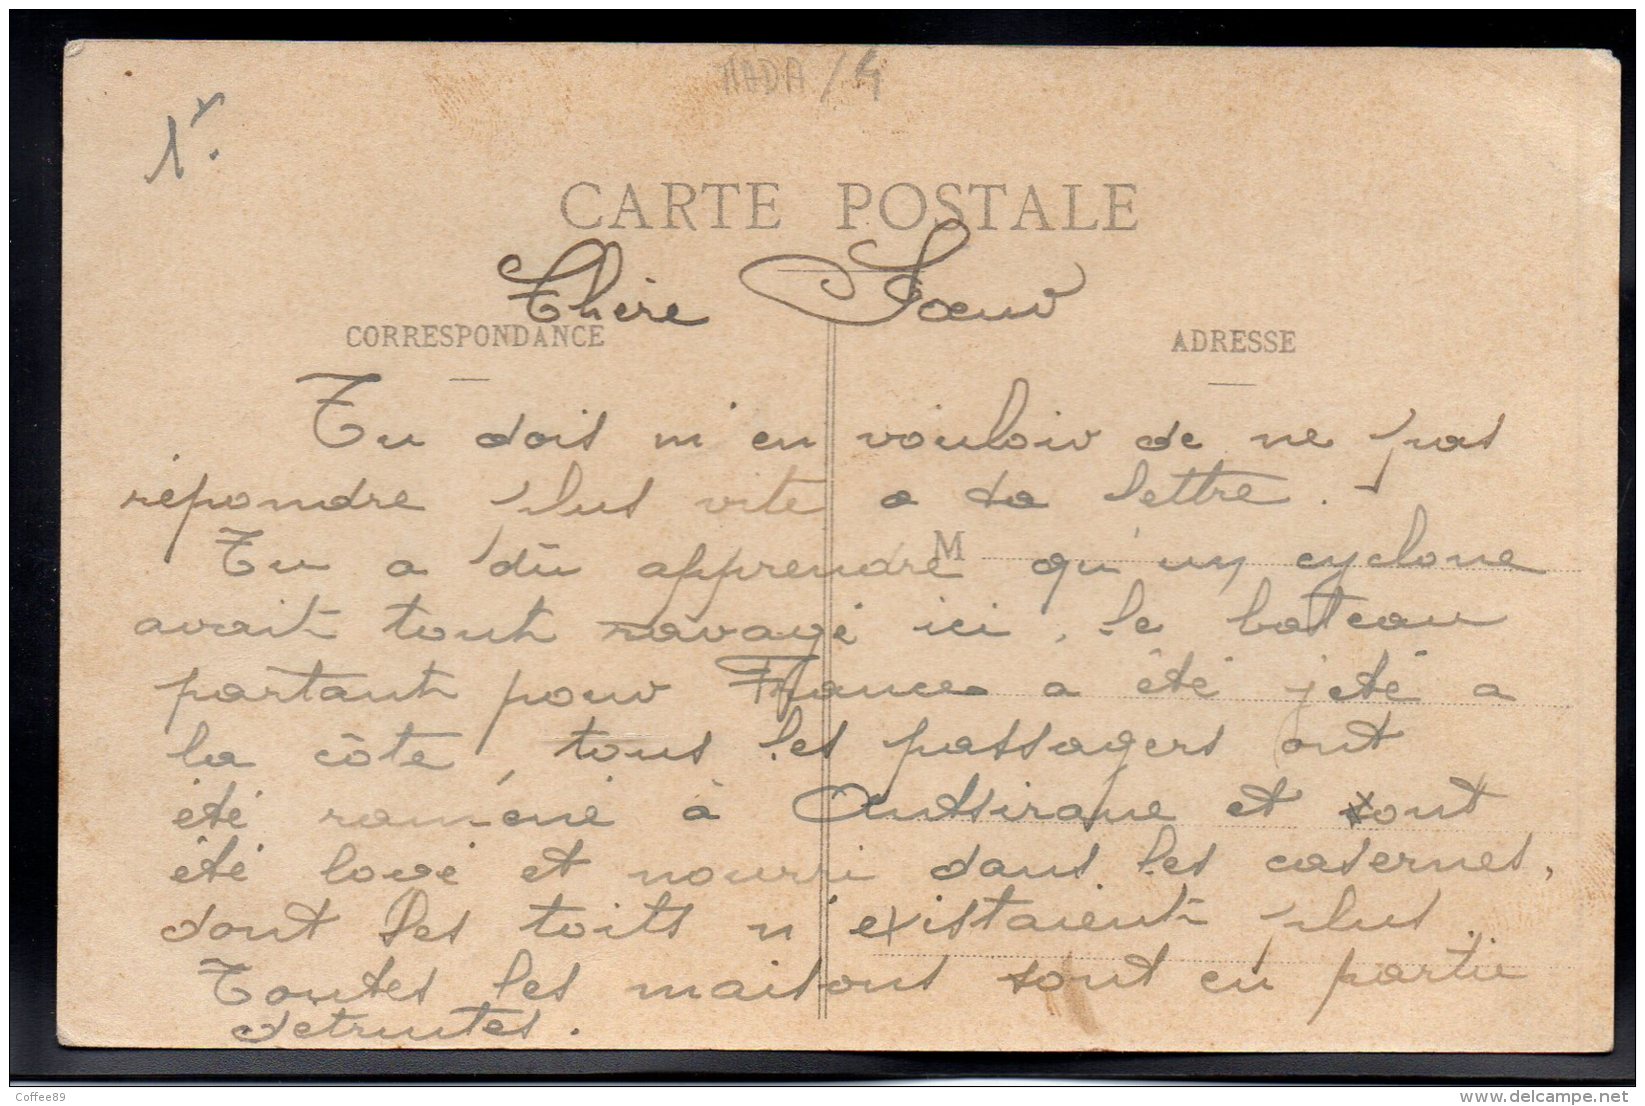 MADA/4
1r.
CARTE POSTALE
Chère Sœur
CORRESPONDANCE
ADRESSE
Tu dois m'en vouloir de ne pas
répondre plus vite a ta lettre. -
M
Tu a dû apprendre qu'un cyclone
avait tout ravagé ici, le bateau
partant pour France a été jeté a
la côte, tous les passagers ont
été raméné à Antsirane et ont
été logé et nourri dans les casernes,
dont les toits n'existaient plus
Toutes les maisons sont en partie
detruites.
Coffee89
www.delcampe.net